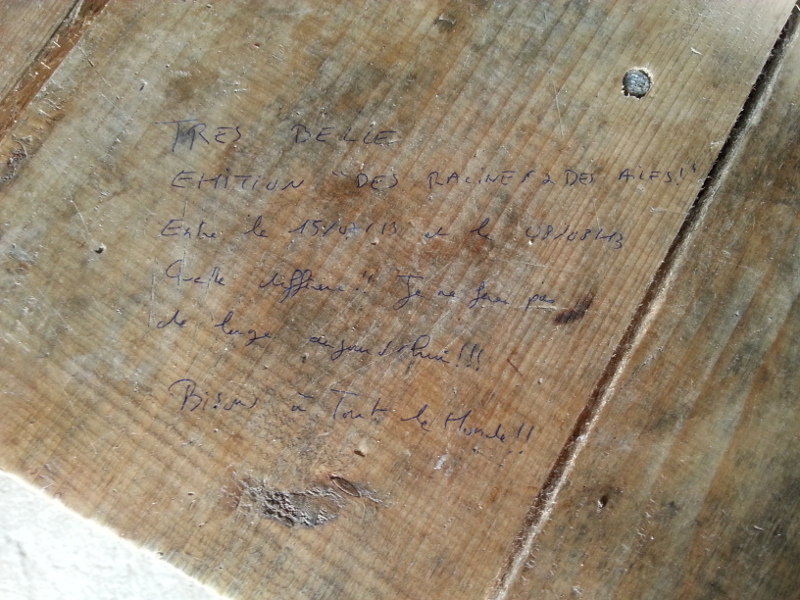 TRES BELLE
EMITION "DES RACINES & DES AILES!!"
Entre le 15/02/13 et le 08/08/13
Quelle différence!! Je ne ferai pas
de luge aujourd'hui!!!
Bisous à Tout le Monde!!